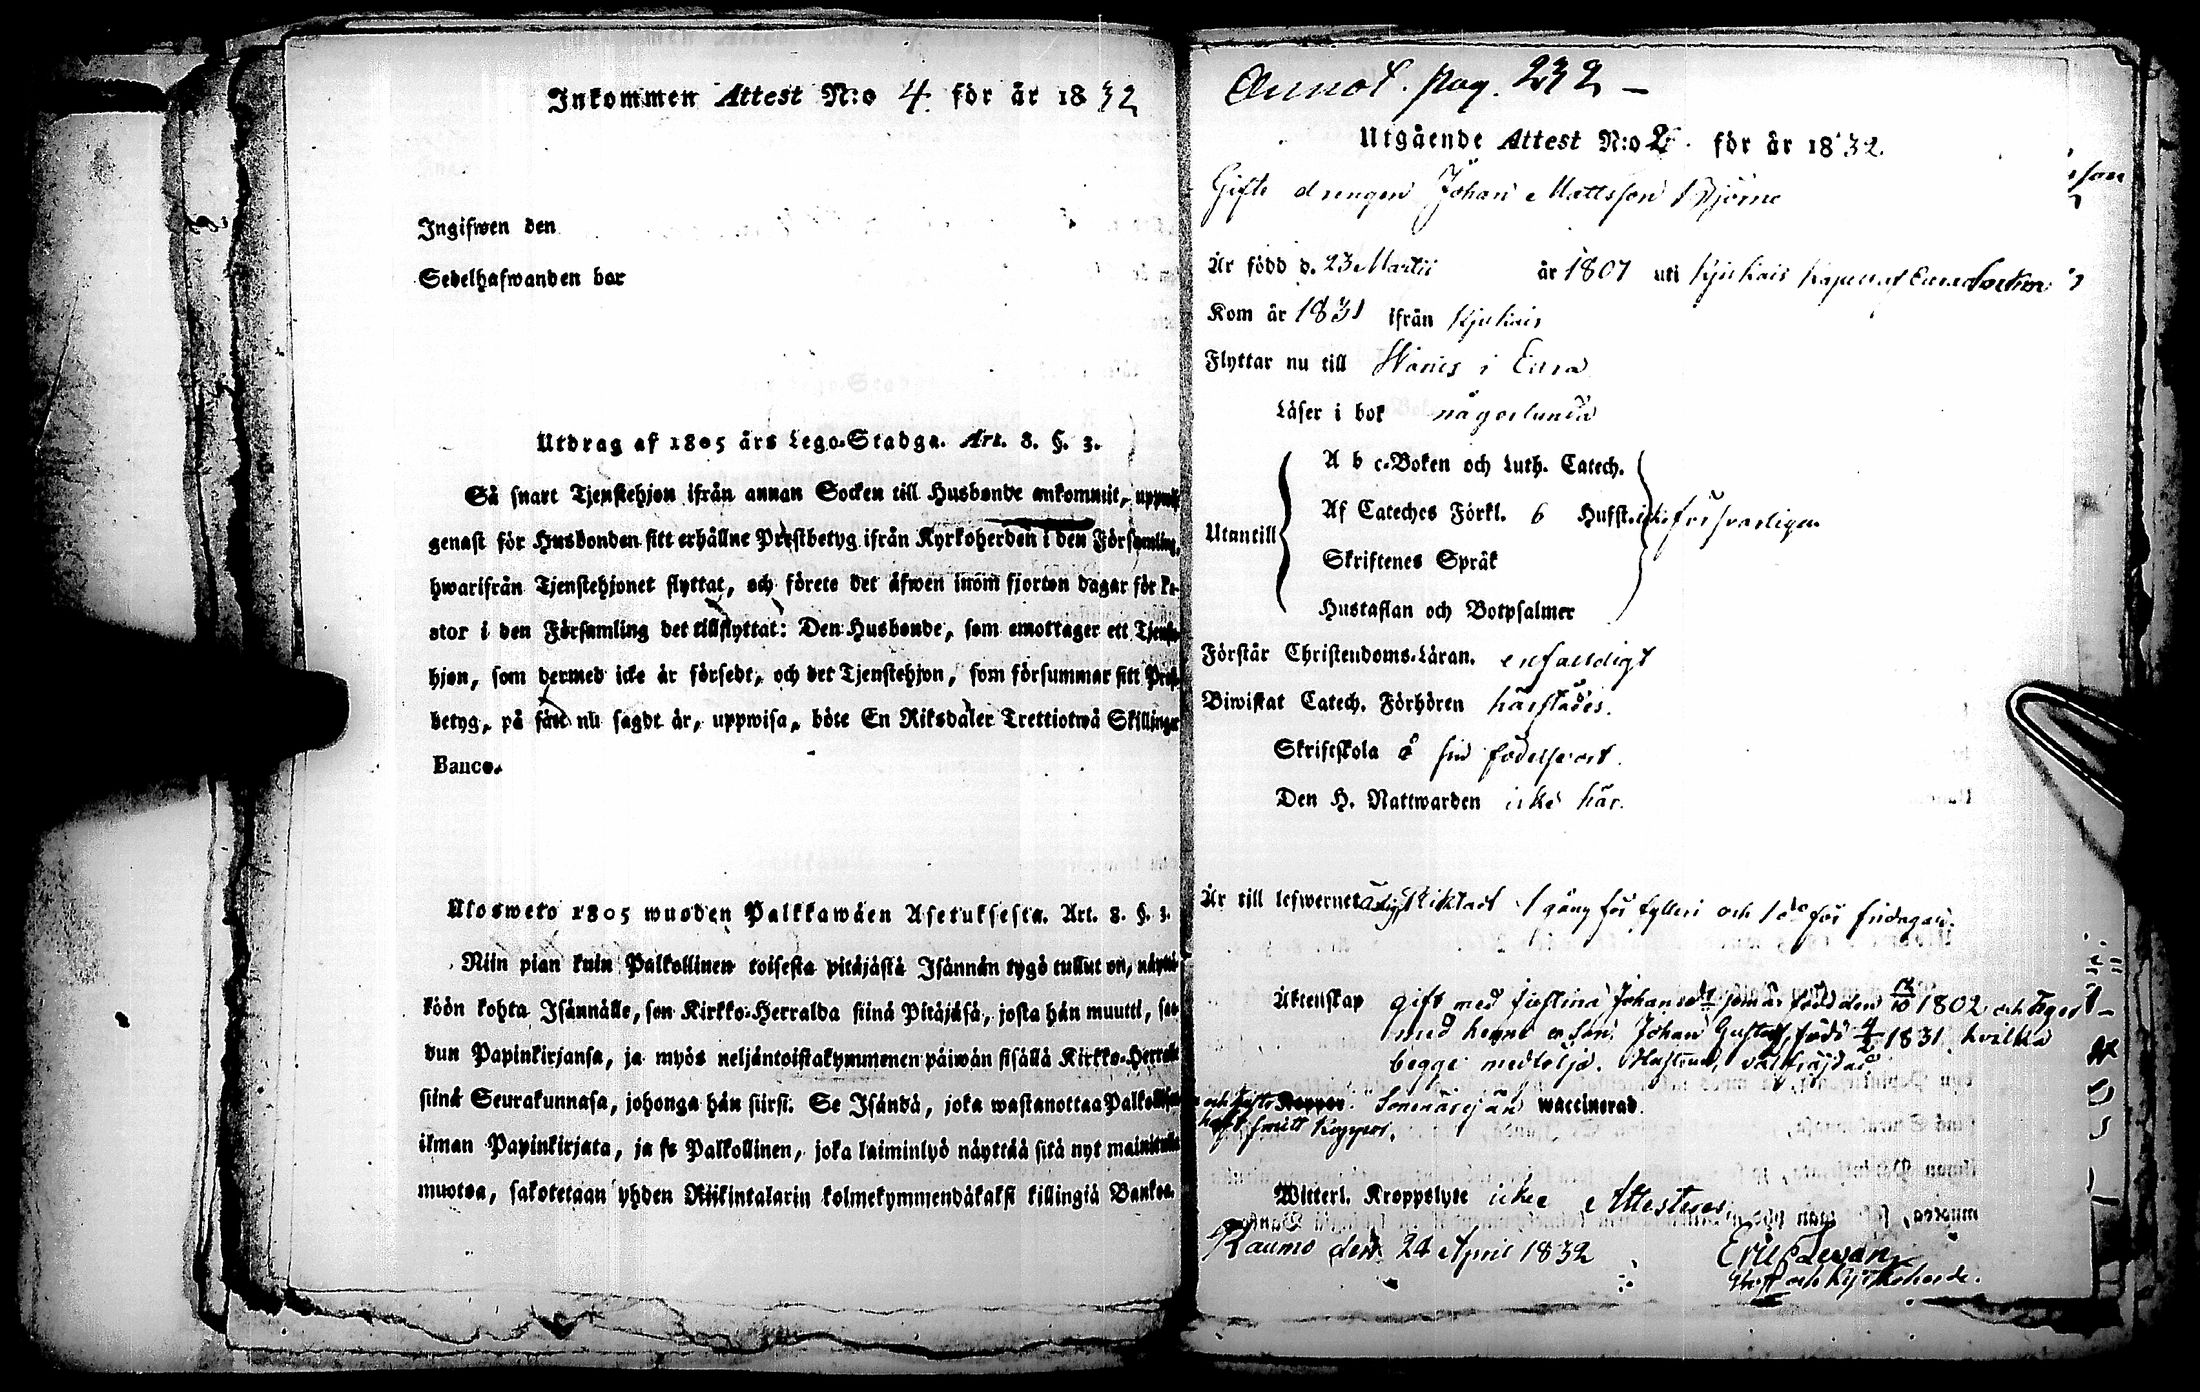 Inkommen Attest N:o 4 för år 1832
Ingifwen den
Sedelhafwanden bor
Utdrag af 1805 års Lego-Stadga. Art. 8. §. 3.
Så snart Tjenstehjon ifrån annan Socken till Husbonde ankommit,
genast för Husbonden sitt erhållne Prestbetyg ifrån Kyrkoherden i den Församling,
hwarifrån Tjenstehjonet flyttat, och förete det äfwen inom fjorton dagar för Pa-
stor i den Församling det tillflyttat: Den Husbonde, som emottager ett Tjenste-
hjon, som dermed icke är försedt, och det Tjenstehjon, som försummar sitt Prest-
betyg, på sätt nu sagdt är, uppwisa, böte En Riksdaler Trettiotwå Skillingar
Banco.
Ulosweto 1805 wuoden Palkkawäen Asetuksesta. Art. 8. §. 3.
Niin pian kuin Palkollinen toisesta pitäjästä Isännän tygö tullut on, näyttä-
köön kohta Isännälle, sen Kirkko-Herralda siinä Pitäjäsä, josta hän muutti, saa-
dun Papinkirjansa, ja myös neljäntoistakymmenen päiwän sisällä Kirkko-Herralle
siinä Seurakunnasa, johonga hän siirsi. Se Isändä, joka wastanottaa Palkollisen
ilman Papinkirjata, ja se Palkollinen, joka laiminlyö näyttää sitä nyt mainitulla
muotoa, sakotetaan yhden Riikintalarin kolmekymmendäkaksi killingiä Bankoa.
Annot. pag. 232 –
Utgående Attest N:o 2 för år 1832.
Gifte drengen Johan Mattsson Björne
Är född d. 23 Martii år 1807 uti Kjukais Kapell af Eura Sockn
Kom år 1831 ifrån Kjukais
Flyttar nu till i Eura
Läser i bok någorlunda
A b c-Boken och Luth. Catech.
Af Cateches Förkl. 6 Hufst. försvarligen
Utantill
Skriftenes Språk
Hustaflan och Botpsalmer
Förstår Christendoms-Läran. enfaldigt
Biwistat Catech. Förhören härstädes.
Skriftskola å sin födelseort.
Den H. Nattwarden icke här.
Är till lefwernet pliktadt 1 gång för fylleri och 1 för
Äktenskap gift med Johansdr som är född den 1802 och äger
med henne en Son. Johan Gustaf, född 1831. hvilka
begge medfölja.
Koppor. Sonen är ej än waccinerad.
haft Koppor.
Witterl. Kroppslyte icke Attesteres
Raumo den 24 April 1832
Eric
Prost och Kyrkoherde.